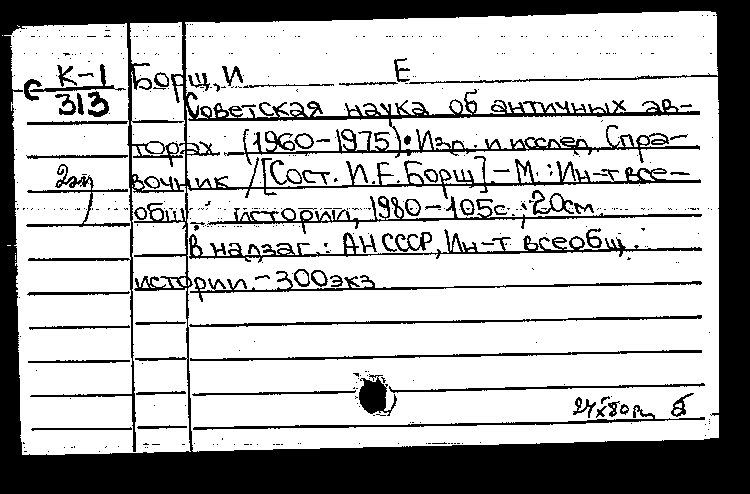 С К-1 Борщ, И Е
313 Советская наука об античных ав-
торах (1960-1975): Изд. и исслед. Спра-
2эк вочник /[Сост. И.Е.Борщ].-М.: Ин-т все-
общ. истории, 1980-105с.; 20см.
В надзаг.: АН СССР, Ин-т всеобщ.
истории.-300экз